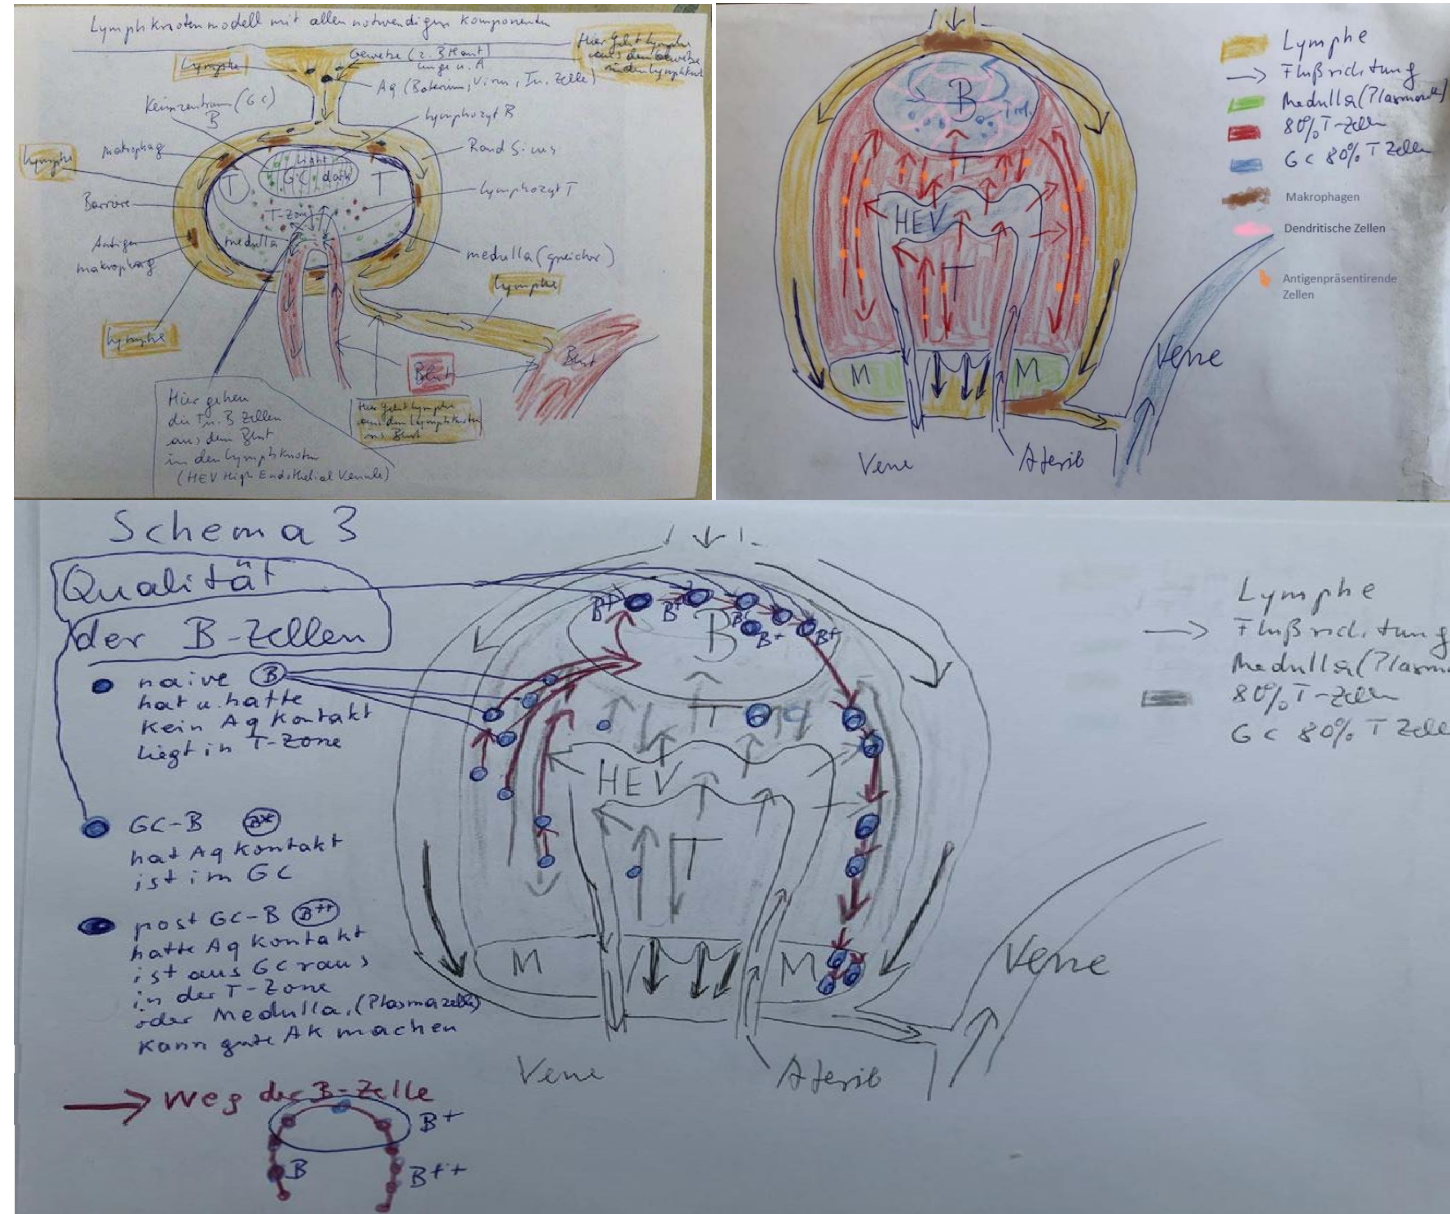 Lymphknotenmodell mit allen notwendigen Komponenten
Lymphe
Gewebe (z. B Haut)
Lunge u. A
Hier geht Lymphe
aus dem Gewebe
in den Lymphknoten
Ag (Bakterium, Virus, In. Zelle)
Keimzentrum (GC)
B
Lymphozyt B
Makrophag
Rand Sinus
Lymphe
light
GC dark
T
T
Lymphozyt T
Barriere
T-Zone
Antigen
makrophag
medulla
medulla (speicher)
Lymphe
Lymphe
Blut
Blut
Hier gehen
die T u. B Zellen
aus dem Blut
in den Lymphknoten
(HEV High Endothelial Venule)
Hier geht Lymphe
aus dem Lymphknoten
ins Blut
B
T
HEV
T
M
M
Vene
Vene
Aterie
Lymphe
Flußrichtung
Medulla (Plasmazell)
80% T-Zellen
GC 80% T Zellen
Makrophagen
Dendritische Zellen
Antigenpräsentirende
Zellen
Schema 3
Qualität
der B-Zellen
naive B
hat u. hatte
kein Ag Kontakt
liegt in T-Zone
GC-B B+
hat Ag Kontakt
ist im GC
post GC-B B++
hatte Ag Kontakt
ist aus GC raus
in der T-Zone
oder Medulla, (Plasmazelle)
kann gute AK machen
Weg der B-Zelle
B+
B
B++
B+
B+
B+
B+
B+
B
T
HEV
T
M
M
Vene
Vene
Aterie
Lymphe
Flußrichtung
Medulla (Plasma
80% T-Zellen
GC 80% T Zelle